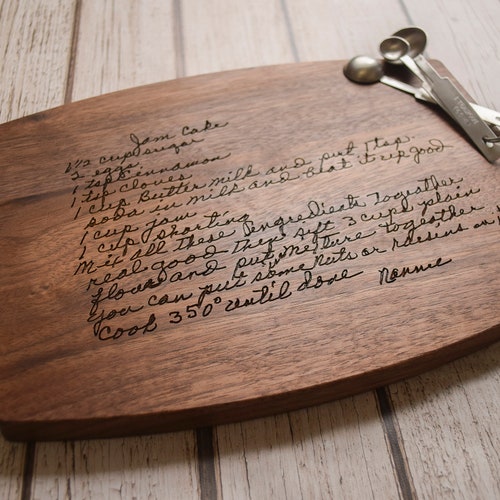 Jam Cake
1 1/2 cup sugar
2 eggs
1 tsp cinnamon
1 tsp cloves
1 cup Butter milk and put 1 tsp.
soda in milk and Beat it up good
1 cup jam
1 cup shorting
Mix all these Ingredients Togather
real good Then sift 3 cups plain
flour and put in meture together
you can put some nuts or raisens on
Cook 350° until done
Nannie